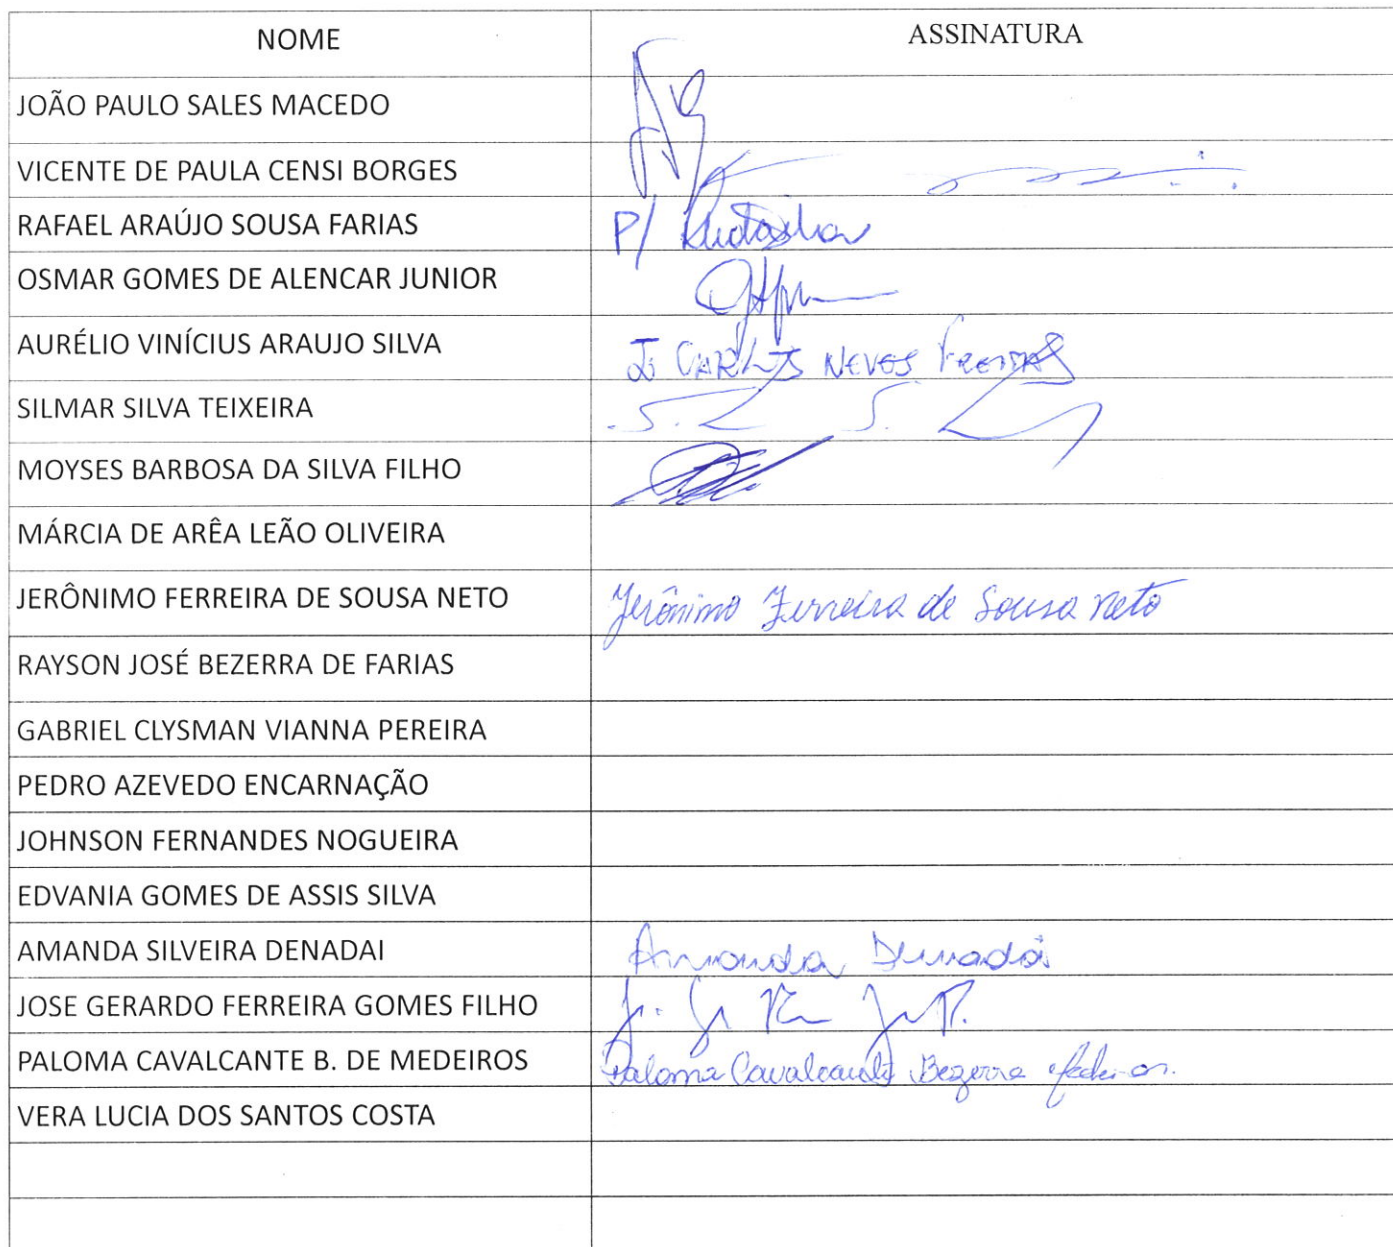 NOME ASSINATURA
JOÃO PAULO SALES MACEDO
VICENTE DE PAULA CENSI BORGES
RAFAEL ARAÚJO SOUSA FARIAS P/
OSMAR GOMES DE ALENCAR JUNIOR
AURÉLIO VINÍCIUS ARAUJO SILVA CARLOS NEVES FREITAS
SILMAR SILVA TEIXEIRA
MOYSES BARBOSA DA SILVA FILHO
MÁRCIA DE ARÊA LEÃO OLIVEIRA
JERÔNIMO FERREIRA DE SOUSA NETO Jerônimo Ferreira de Sousa Neto
RAYSON JOSÉ BEZERRA DE FARIAS
GABRIEL CLYSMAN VIANNA PEREIRA
PEDRO AZEVEDO ENCARNAÇÃO
JOHNSON FERNANDES NOGUEIRA
EDVANIA GOMES DE ASSIS SILVA
AMANDA SILVEIRA DENADAI Amanda Denadai
JOSE GERARDO FERREIRA GOMES FILHO
PALOMA CAVALCANTE B. DE MEDEIROS Paloma Cavalcante Bezerra
VERA LUCIA DOS SANTOS COSTA